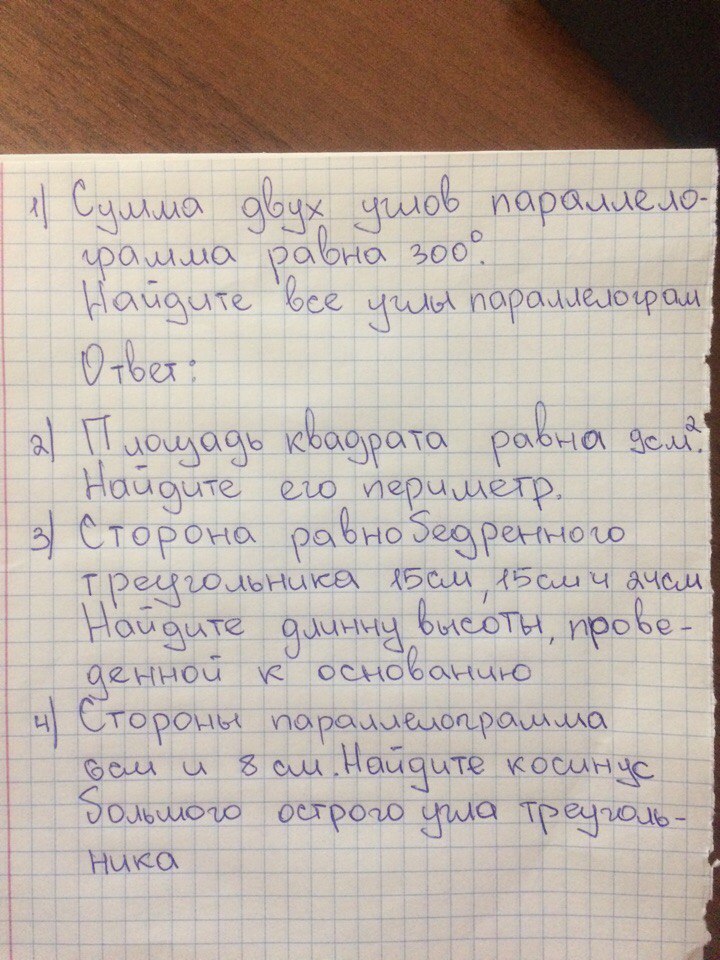 1) Сумма двух углов параллело-
грамма равна 300°.
Найдите все углы параллелограм
Ответ:
2) Площадь квадрата равна 9см².
Найдите его периметр.
3) Сторона равнобедренного
треугольника 15см, 15см и 24см
Найдите длинну высоты, прове-
денной к основанию
4) Стороны параллелограмма
6см и 8 см. Найдите косинус
большого острого угла треуголь-
ника